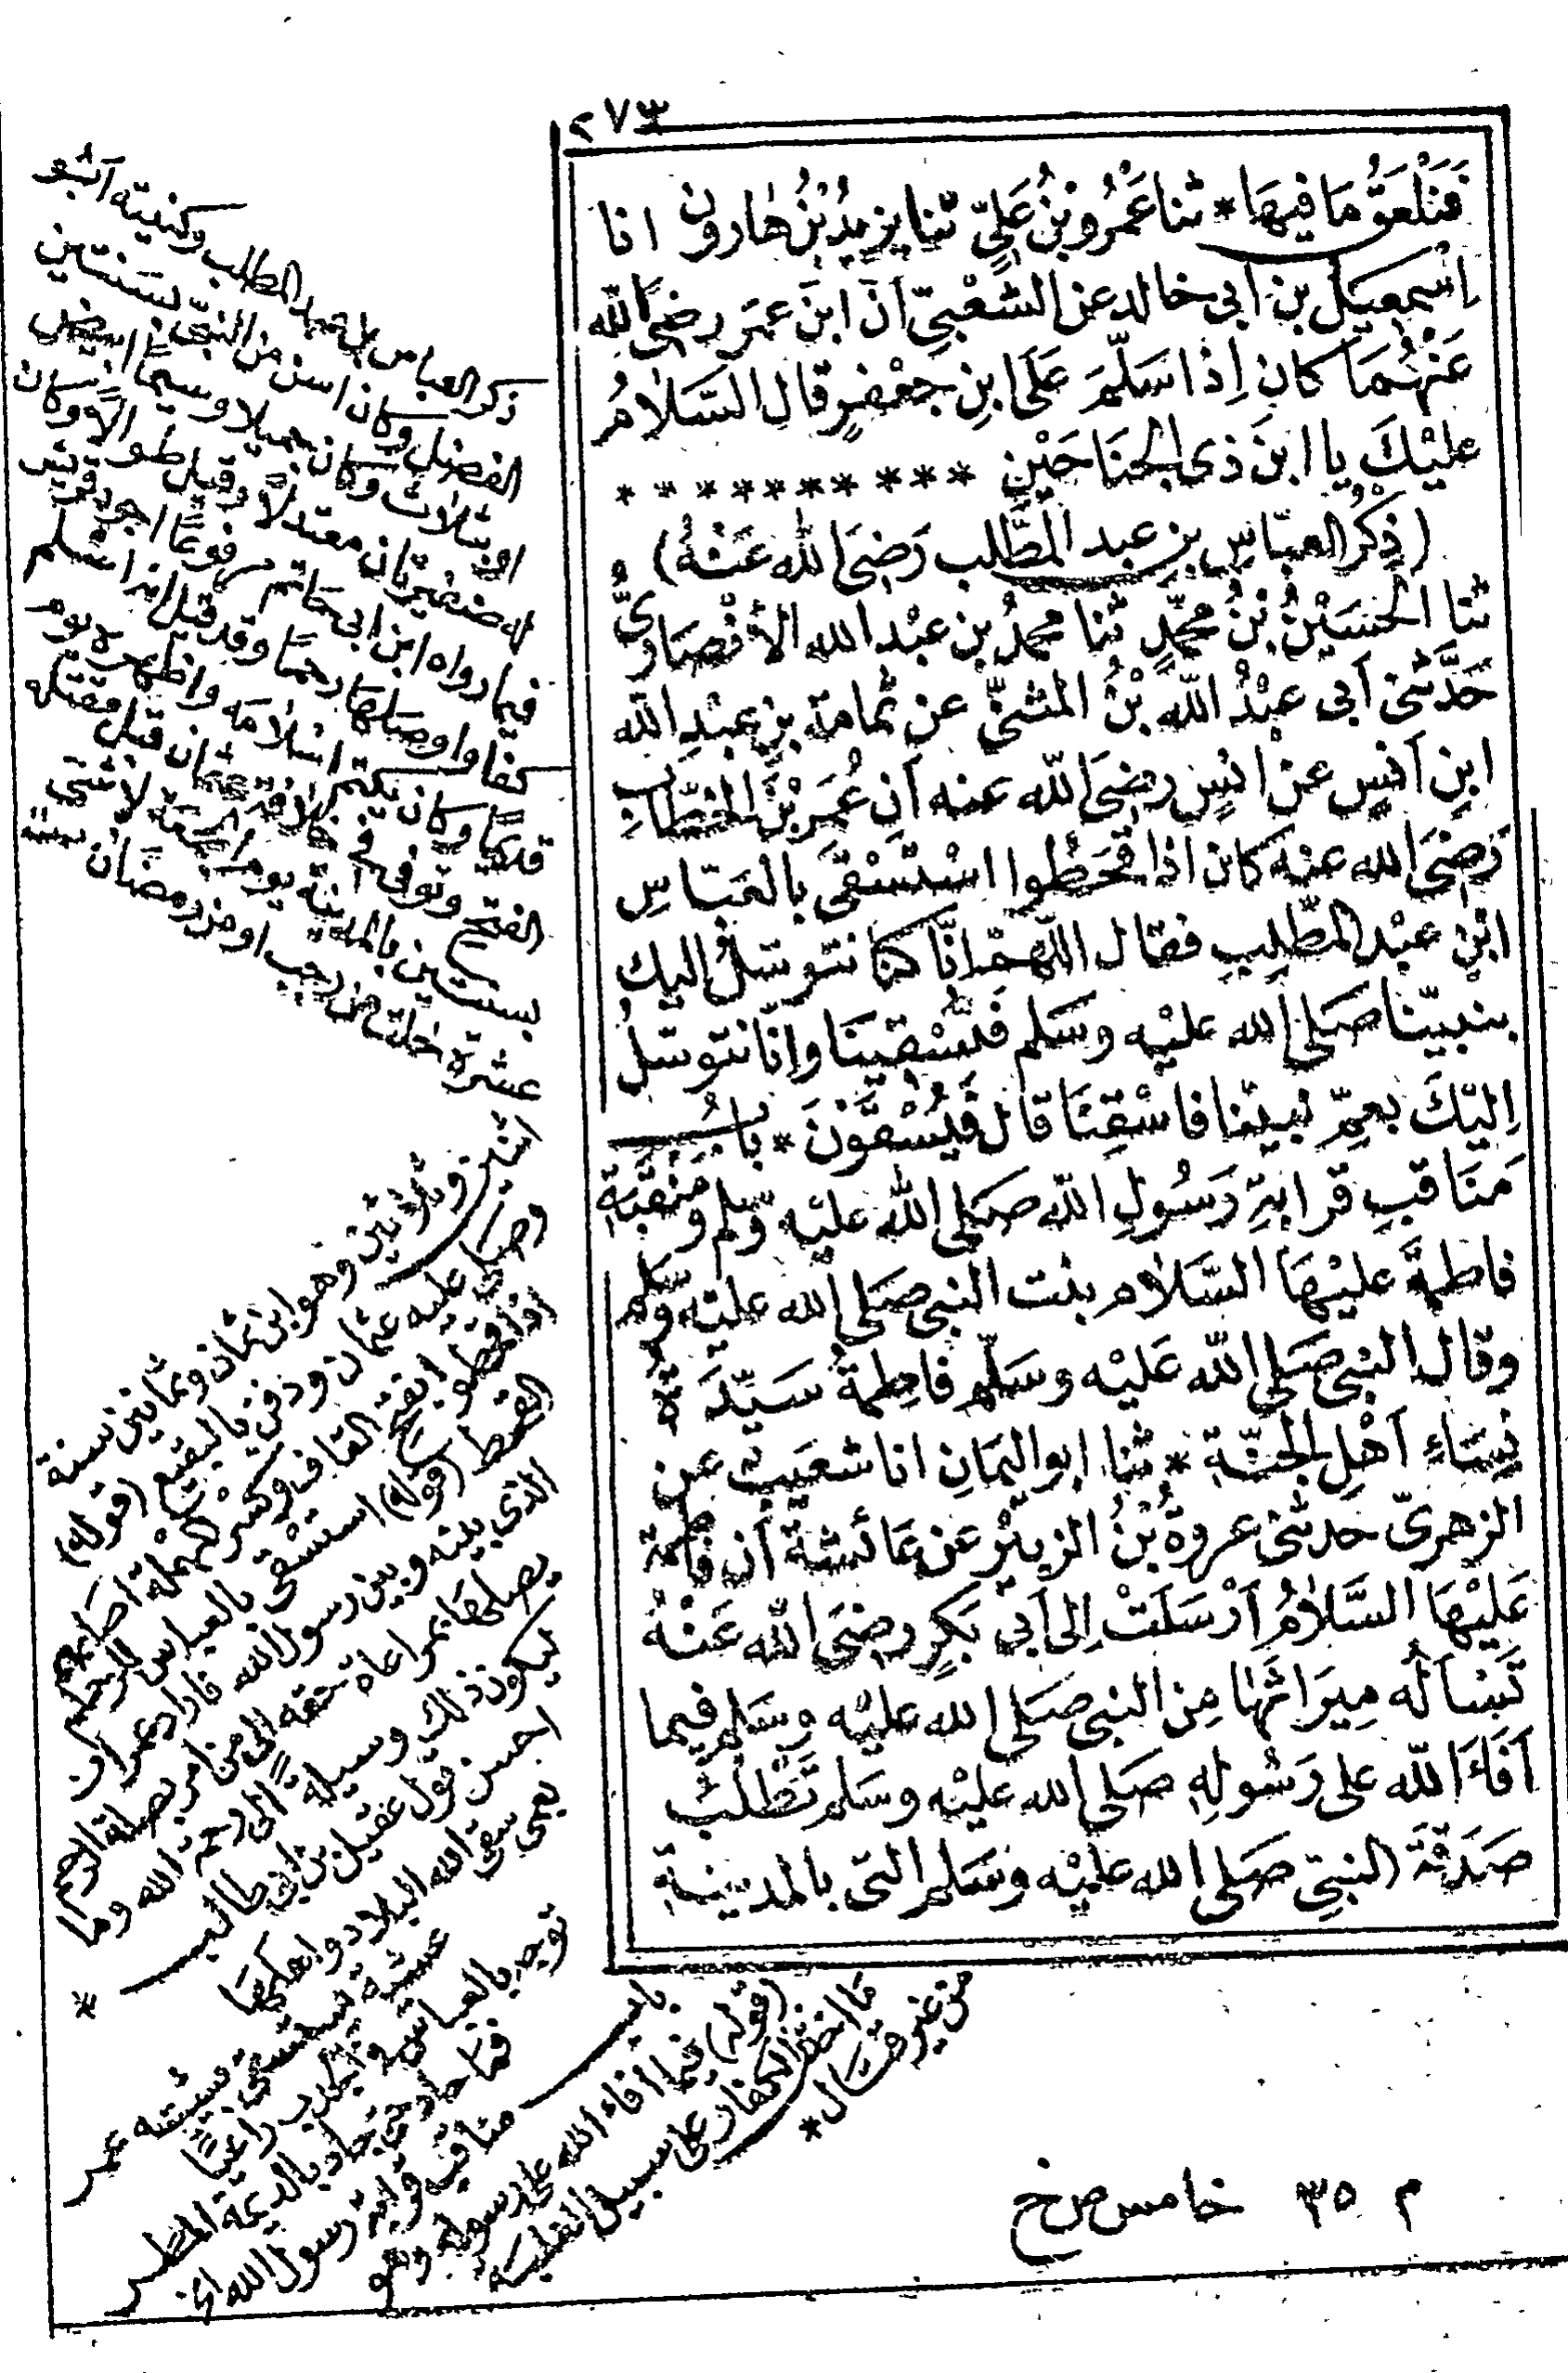 ٢٧٣
فَنَلْعَقُ مَا فِيهَا * ثنا عَمْرُو بْنُ عَلِيٍّ ثنا يزيدُ بْنُ هَارون انا
اِسْمعِيلُ بن ابى خالد عن الشَّعْبِىِّ اَنَّ ابنَ عمَر رضىَ الله
عَنْهُمَا كان اِذَا سَلَّمَ عَلَى ابنِ جعْفرٍ قال السَّلامُ
عليْكَ يا ابنَ ذى الجنَاحَيْنِ * * * * * * * * * *
(ذِكْرُ العبّاسِ بن عبد المطَّلب رَضِىَ الله عَنْهُ)
ثنا الحسَيْنُ بْنُ محمَّدٍ ثنا محمدُ بن عبْد الله الأنْصَارِىُّ
حَدَّثنى اَبى عبْدُ اللهِ بْنُ المثنىَّ عن ثُمامةَ بنِ عبْدِ الله
ابنِ اَنَسٍ عن انسٍ رضىَ الله عنه اَن عُمَر بْنَ الخطَّابِ
رَضِىَ الله عنه كان اذا قحَطُوا اسْتَسْقَى بالعَبّاسِ
ابْنِ عبْد المطّلِبِ فقال اللّهمَّ اِنَّا كنا نتَوسَّلُ اليك
بنبيّنا صَلى الله عليْه وسَلم فَتَسْقِينَا وانّا نتوسّلُ
اِليْكَ بعمِّ نبينا فاسْقِنَا قال فَيُسْقَوْنَ * بابُ
مَنَاقبِ قرابةِ رَسُولِ الله صَلى الله عليْه وسلم ومَنقَبَةِ
فاطمةَ عليْهَا السَّلام بنت النبى صَلى الله عليْه وسَلم
وقال النبى صَلى الله عَليْه وسَلّم فاطِمةُ سَيِّدَةُ
نِسَاءِ اَهْلِ الجنّة * ثنا ابو اليمَانِ انا شعَيبٌ عن
الزهرىّ حَدثنى عروةُ بْنُ الزبيْرِ عن عَائشةَ اَن فاطمة
عَليْهَا السَّلامُ اَرْسَلَتْ اِلى اَبى بَكرٍ رضىَ الله عَنْهُ
تَسْاَلُه مِيرَاثَهَا مِن النبى صَلى الله عليْه وسَلم فيما
اَفَاءَ الله على رَسُولِهِ صَلى الله عليْه وسَلم تَطْلُبُ
صَدَقةَ النبىِّ صَلى الله عليْه وسَلم التى بالمدينةِ
ذكر العباس بن عبد المطلب وكنيته ابو
الفضل وكان اسن من النبى بسنتين
او بثلاث وكان جميلا وسيمًا ابيض
له ضفيرتان معتدلًا وقيل طوالًا وكان
فيما رواه ابن ابى حاتم مرفوعًا اجود قريش
كفا واوصلها رحمًا وقد قيل انه اسلم
قديمًا وكان يكتم اسلامه واظهره يوم
الفتح وتوفى فى خلافة عثمان قبل مقتله
بسنتين بالمدينة يوم الجمعة لاثنتى
عشرة خلت من رجب او من رمضان سنة
اثنين وثلاثين وهو ابن ثمان وثمانين سنة
وصلى عليه عثمان ودفن بالبقيع (قوله)
اذا قحطوا بفتح القاف وكسر المهملة اصابهم
القحط (قوله) استسقى بالعباس للرحم
الذى بينه وبين رسول الله فاراد عمر ان
يصلها بمراعاة حقه الى من امر بصلة الارحام
ليكون ذلك وسيلة الى رحمة الله وما
احسن قول عقيل بن ابى طالب *
بعمى سقى الله البلاد واهلها
عشية يستسقى بشيبته عمر
توجه بالعباس فى الجدب داعيًا
فما حاد حتى جاد بالديمة المطر
باب مناقب قرابة رسول الله الخ
(قوله) فيما افاء الله على رسوله وهو
ما اخذ من الكفار على سبيل الغلبة
من غير قتال *
م ٣٥ خامس ص خ